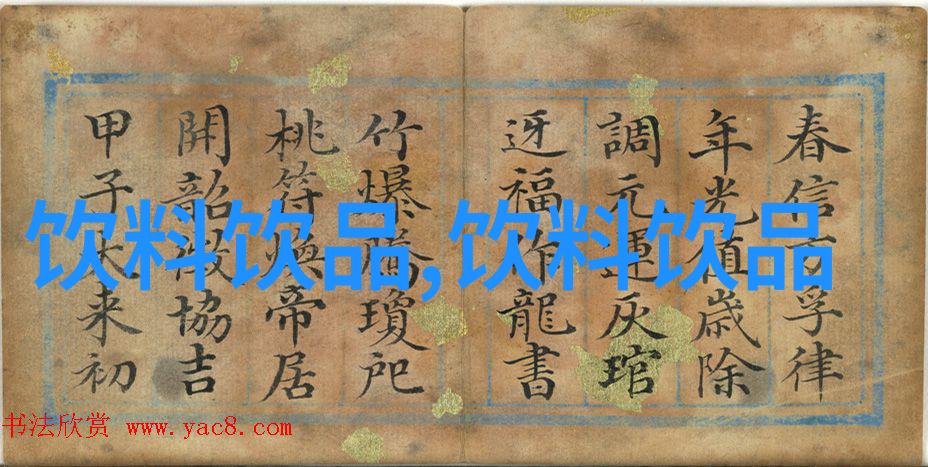 春信方孚律
年光值歳除
調元運灰琯
迓福作龍書
竹爆瓊
桃符煥帝居
開韶協吉
甲子来初
饮料饮品,饮料饮品
书法欣赏 www.yac8.com